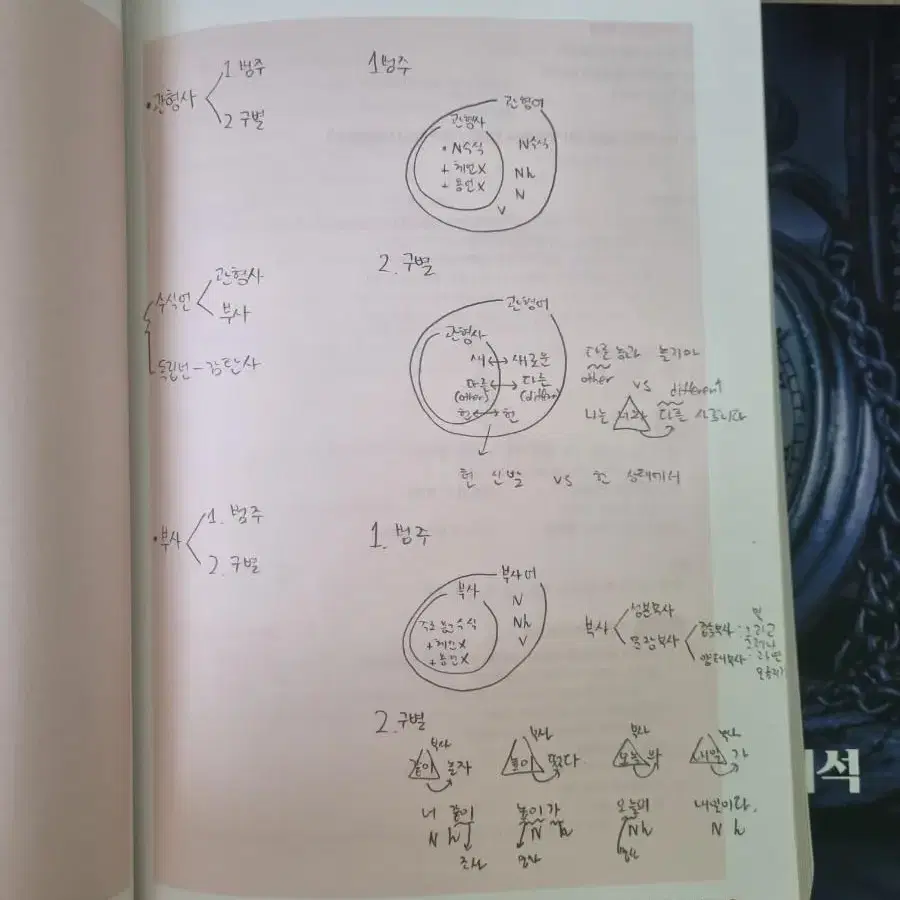 •관형사
1 범주
2 구별
1 범주
관형어
관형사
• N수식
+ 체언X
+ 용언X
N수식
Nh
N
V
수식언
관형사
부사
독립언 - 감탄사
2. 구별
관형어
관형사
새 ↔ 새로운
다른 ↔ 다른
(other)
헌 ↔ 헌
other
vs
different
나는 너와 다른 사람이다
헌 신발 vs 헌 상태에서
•부사
1. 범주
2. 구별
1. 범주
부사어
부사
수식
+체언X
+용언X
N
Nh
V
부사
성분부사
문장부사
접속부사 : 그리고
그러나
양태부사 :
2. 구별
부사
같이 놀자
부사
높이 떴다
부사
오늘 와
부사
내일 가
너 같이
N h
조사
높이가
N h
명사
오늘이
Nh
명사
내일이다.
N h
석